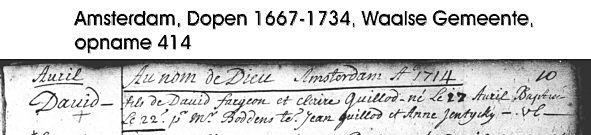 Amsterdam, Dopen 1667-1734, Waalse Gemeente,
opname 414
Auril Au nom de Dieu Amsterdam A° 1714 10
David fils de David fargeon et claire Quillod - né Le 17 Auril Baptisé
Le 22.e p Mr Boddens te. jean quillod et Anne